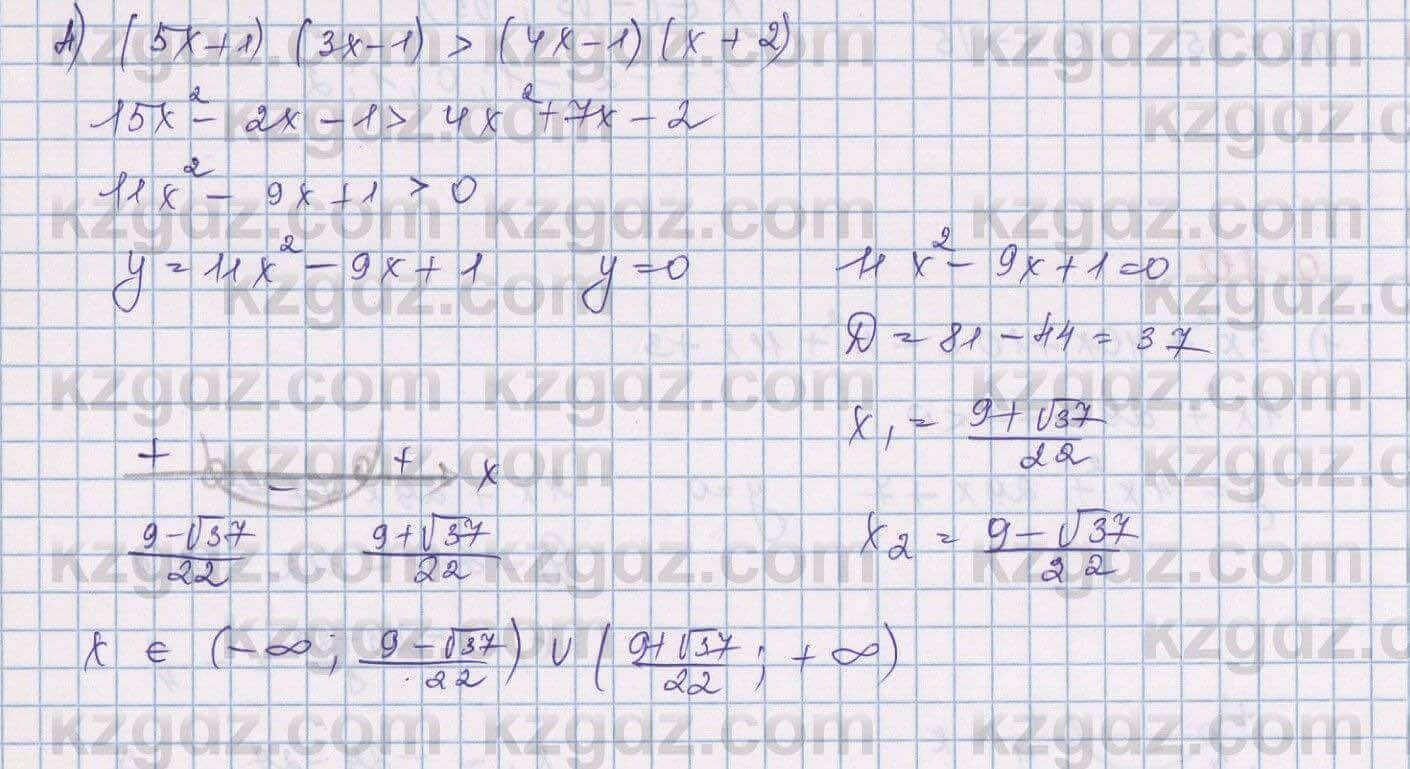 1) (5x+1) (3x-1) > (4x-1) (x+2)
15x² - 2x - 1 > 4x² + 7x - 2
11x² - 9x + 1 > 0
y = 11x² - 9x + 1 y = 0 11x² - 9x + 1 = 0
D = 81 - 44 = 37
x₁ = (9+√37)/22
+ - + x
(9-√37)/22 (9+√37)/22 x₂ = (9-√37)/22
x ∈ (-∞; (9-√37)/22) ∪ ((9+√37)/22; +∞)
kzgdz.com